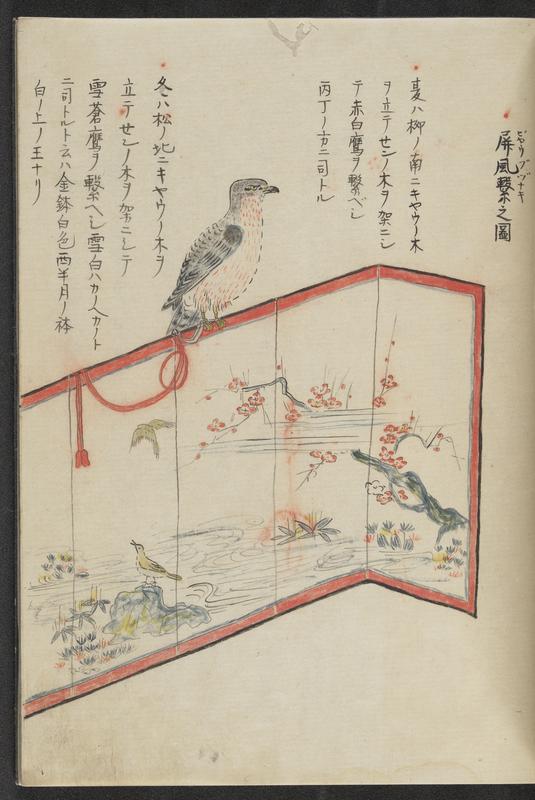 屏風繋之圖
夏ハ柳ノ南ニキヤウノ木
ヲ立テセンノ木ヲ架ニシ
テ赤白鷹ヲ繋ベシ
丙丁ノ方ニ司トル
冬ハ松ノ北ニキヤウノ木ヲ
立テセンノ木ヲ架ニシテ
雪蒼鷹ヲ繋ヘシ雪白ハカノヘカノト
ニ司トルト云ハ金鉢白色酉半月ノ
白ノ上ノ王ナリ